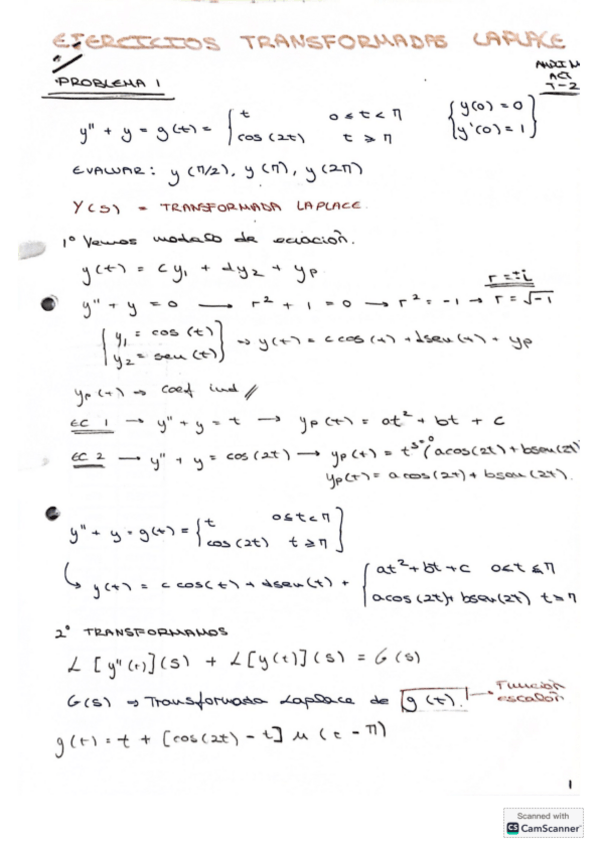 EJERCICIOS TRANSFORMADAS LAPLACE
PROBLEMA 1
y'' + y = g(t) = { t 0 ≤ t < π
cos(2t) t ≥ π
{ y(0) = 0
y'(0) = 1 }
EVALUAR: y(π/2), y(π), y(2π)
Y(s) = TRANSFORMADA LAPLACE.
1º Vemos modelo de ecuación.
y(t) = cy₁ + dy₂ + yp
r = ±i
y'' + y = 0 → r² + 1 = 0 → r² = -1 → r = √-1
{ y₁ = cos(t)
y₂ = sen(t) } ⇒ y(t) = c cos(t) + dsen(t) + yp
yp(t) ⇒ coef ind //
EC 1 → y'' + y = t → yp(t) = at² + bt + c
EC 2 → y'' + y = cos(2t) → yp(t) = t^s=0 (acos(2t) + bsen(2t)
yp(t) = acos(2t) + bsen(2t).
y'' + y = g(t) = { t 0 ≤ t < π
cos(2t) t ≥ π }
↳ y(t) = c cos(t) + dsen(t) + { at² + bt + c 0 < t ≤ π
acos(2t) + bsen(2t) t = π
2º TRANSFORMAMOS
L [y''(t)](s) + L[y(t)](s) = G(s)
G(s) ⇒ Transformada Laplace de g(t). → Función
escalón
g(t) = t + [cos(2t) - t] μ(t - π)
1
Scanned with
CS CamScanner